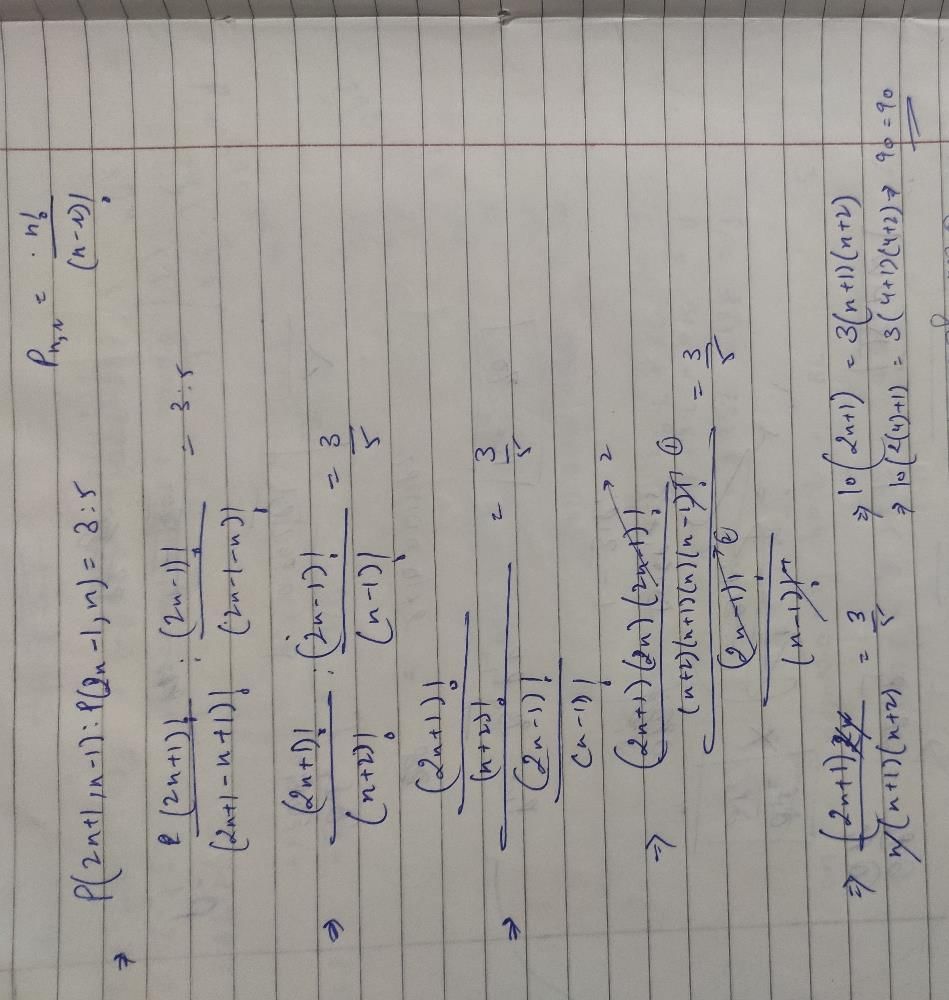 P_{n,r} = n! / (n-r)!
⇒ P(2n+1, n-1) : P(2n-1, n) = 3:5
P (2n+1)! / (2n+1-n+1)! : (2n-1)! / (2n-1-n)! = 3:5
⇒ (2n+1)! / (n+2)! : (2n-1)! / (n-1)! = 3/5
⇒ (2n+1)! / (n+2)! / (2n-1)! / (n-1)! = 3/5
⇒ (2n+1)(2n)(2n-1)! → 2 / (n+2)(n+1)(n)(n-1)! ① / (2n-1)! / (n-1)! = 3/5
⇒ (2n+1) 2n / n(n+1)(n+2) = 3/5 ⇒ 10(2n+1) = 3(n+1)(n+2)
⇒ 10(2(4)+1) = 3(4+1)(4+2) ⇒ 90 = 90